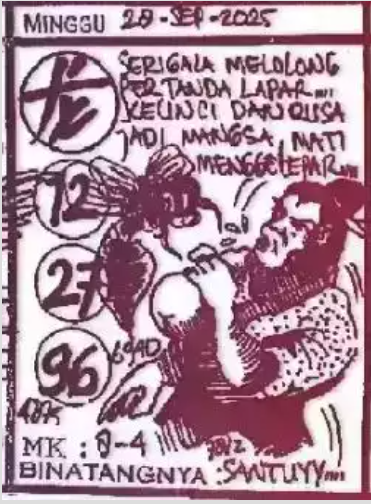 MINGGU 28-SEP-2025
SERIGALA MELOLONG
PERTANDA LAPAR....
KELINCI DAN RUSA
JADI MANGSA, MATI
MENGGELEPAR....
72
27
96
MK : 8-4
BINATANGNYA : SANTUYY....